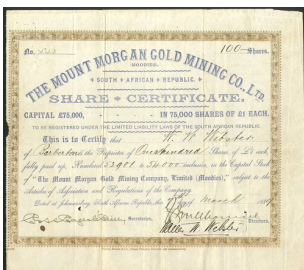 No.
100 Shares.
THE MOUNT MORGAN GOLD MINING CO., LTD.
(MOODIES),
SOUTH AFRICAN REPUBLIC.
SHARE CERTIFICATE.
CAPITAL £75,000, IN 75,000 SHARES OF £1 EACH.
TO BE REGISTERED UNDER THE LIMITED LIABILITY LAWS OF THE SOUTH AFRICAN REPUBLIC.
This is to Certify that W. W. Webster
of Barberton is the Proprietor of One hundred Shares of £1 each,
fully paid up, Numbered 53901 to 54000 inclusive, in the Capital Stock
of "The Mount Morgan Gold Mining Company, Limited (Moodies)," subject to the
Articles of Association and Regulations of the Company.
Dated at Johannesburg, South African Republic, this day of March 1889
Secretaries.
Directors.
Webster